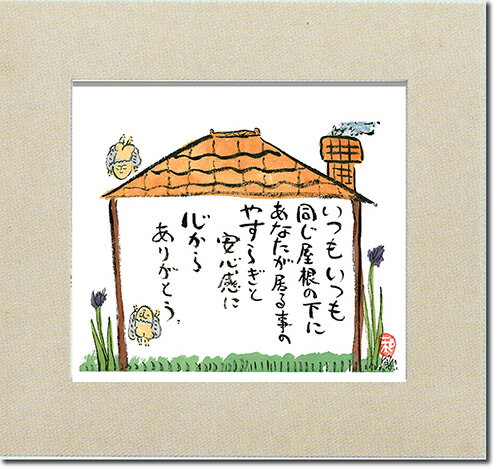 いつもいつも
同じ屋根の下に
あなたが居る事の
やすらぎと
安心感に
心から
ありがとう